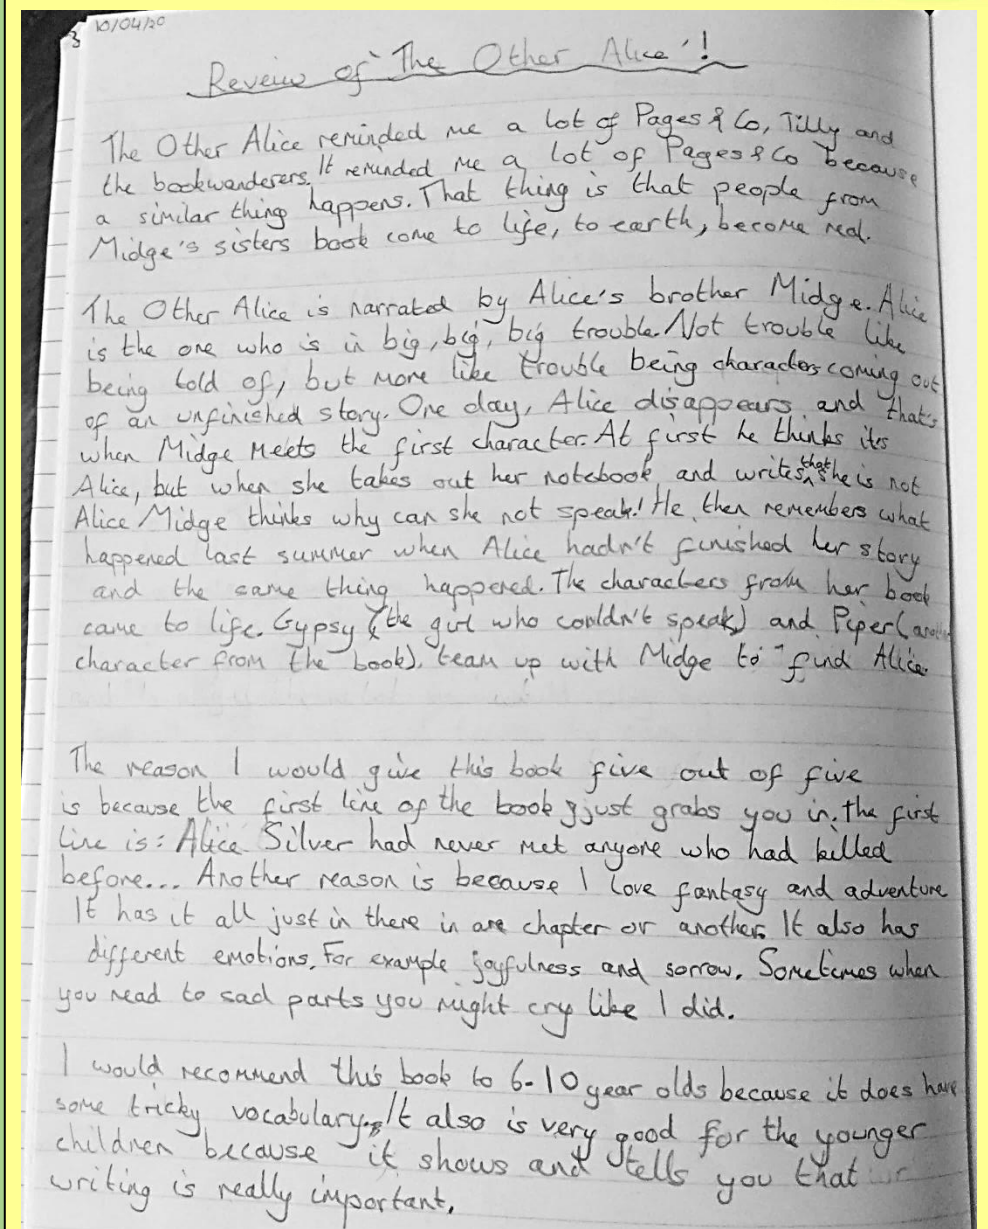 3 10/04/20
Reveiw of 'The Other Alice'!
The Other Alice reminded me a lot of Pages & Co, Tilly and
the bookwanderers. It reminded me a lot of Pages & Co because
a similar thing happens. That thing is that people from
Midge's sisters book come to life, to earth, become real.
The Other Alice is narrated by Alice's brother Midge. Alice
is the one who is in big, big, big trouble. Not trouble like
being told of, but more like trouble being characters coming out
of an unfinished story. One day, Alice disappears and that's
when Midge meets the first character. At first he thinks its
Alice, but when she takes out her notebook and writes that she is not
Alice Midge thinks why can she not speak! He then remembers what
happened last summer when Alice hadn't finished her story
and the same thing happened. The characters from her book
came to life. Gypsy (the girl who couldn't speak) and Piper (another
character from the book), team up with Midge to find Alice.
The reason I would give this book five out of five
is because the first line of the book just grabs you in. The first
line is: Alice Silver had never met anyone who had killed
before... Another reason is because I love fantasy and adventure
It has it all just in there in one chapter or another. It also has
different emotions. For example joyfulness and sorrow. Sometimes when
you read to sad parts you might cry like I did.
I would recommend this book to 6-10 year olds because it does have
some tricky vocabulary. It also is very good for the younger
children because it shows and tells you that
writing is really important.